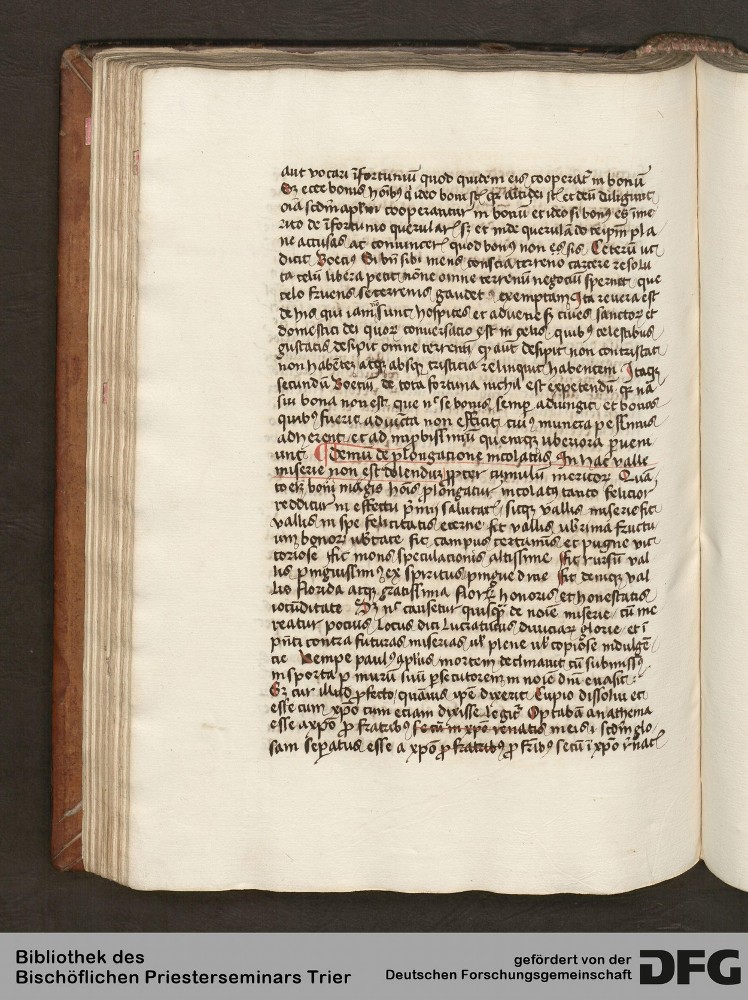 aut vocari īfortuniū quod quidem eis cooperat᷑ in bonū
Sꝫ ecce bonis hoībꝰ q̇ ideo boni st̄ qꝛ st̄ et deū diligunt
oīa scd̄m aplm̄ cooperantur in bonū et ideo si bonꝰ es īme
rito de īfortunio querularis sꝫ et inde querulādo teip̄m pla
ne accusas ac convincer᷑ quod bonꝰ non es sis Ceterū ut
dicit Boeciꝰ Si bn̄ sibi mens conscia terreno carcere resolu
ta celū libera petit nōne omne terrenū negociū spernet que
celo fruens se terrenis gaudet exemptam Ita revera est
de his qui iam sunt hospites et advene sꝫ cives sanctoꝝ et
domestici dei quoꝝ conversacio est in celis quibꝰ celestibus
gustatis desipit omne terrenū qd̄ aut desipit non contristat
non habētem atqꝫ absqꝫ tristicia relinquit habentem Itaqꝫ
secundū Boeciū de tota fortuna nichil est expetendū qꝛ nā
sui bona non est que nec se bonis semp̄ adiungit et bonos
quibꝰ fuerit adiūcta non efficit cuiꝰ munera pessimis
adherent et ad improbissimū quemqꝫ uberiora proveni
unt De mū de ꝓlongacione incolatus In hac valle
miserie non est dolenduꝫ ꝓpter cumulū meritoꝝ Quā
to eī boni magis hoīs ꝓlongatur incolatꝰ tanto felicior
redditur in effectu p̄mii salutar᷑ sicqꝫ vallis miserie fit
vallis in spe felicitatis eterne fit vallis uberima fructu
um bonoꝝ ubtate fit campus certaminis et pugne vic
toriose fit mons speculacionis altissime fit rursū val
lis pinguissima ex spiritus pingwedine fit deniqꝫ val
lis florida atqꝫ gratissima floꝝ honoris et honestatis
iocūditate Sꝫ nec causetur quisqꝫ de noīe miserie cū me
reatur pocius locus dici lucrativus diviciaꝝ glorie et ī
pn̄ti contra futuras miserias vl̓ plene vl̓ copiose indulgē
cie Nempe paulꝰ aplūs mortem declinavit cū submissꝰ
in sporta p̱ murū suū ꝓsecutorem in noīe dn̄i evasit
Sꝫ cur illud ꝓfecto quāvis ip̄e dixerit Cupio dissolvi et
esse cum xp̄o tum etiam dixisse legit᷑ Optabā anathema
esse a xp̄o ꝓ fratribꝰ secū in xp̄o renatis meis scd̄m glo
sam sep̱atus esse a xp̄o ꝓ fratribꝰ ꝓ fr̄ibꝰ secū ī xp̄o r̄nat᷑
Bibliothek des
Bischöflichen Priesterseminars Trier
gefördert von der
Deutschen Forschungsgemeinschaft
DFG